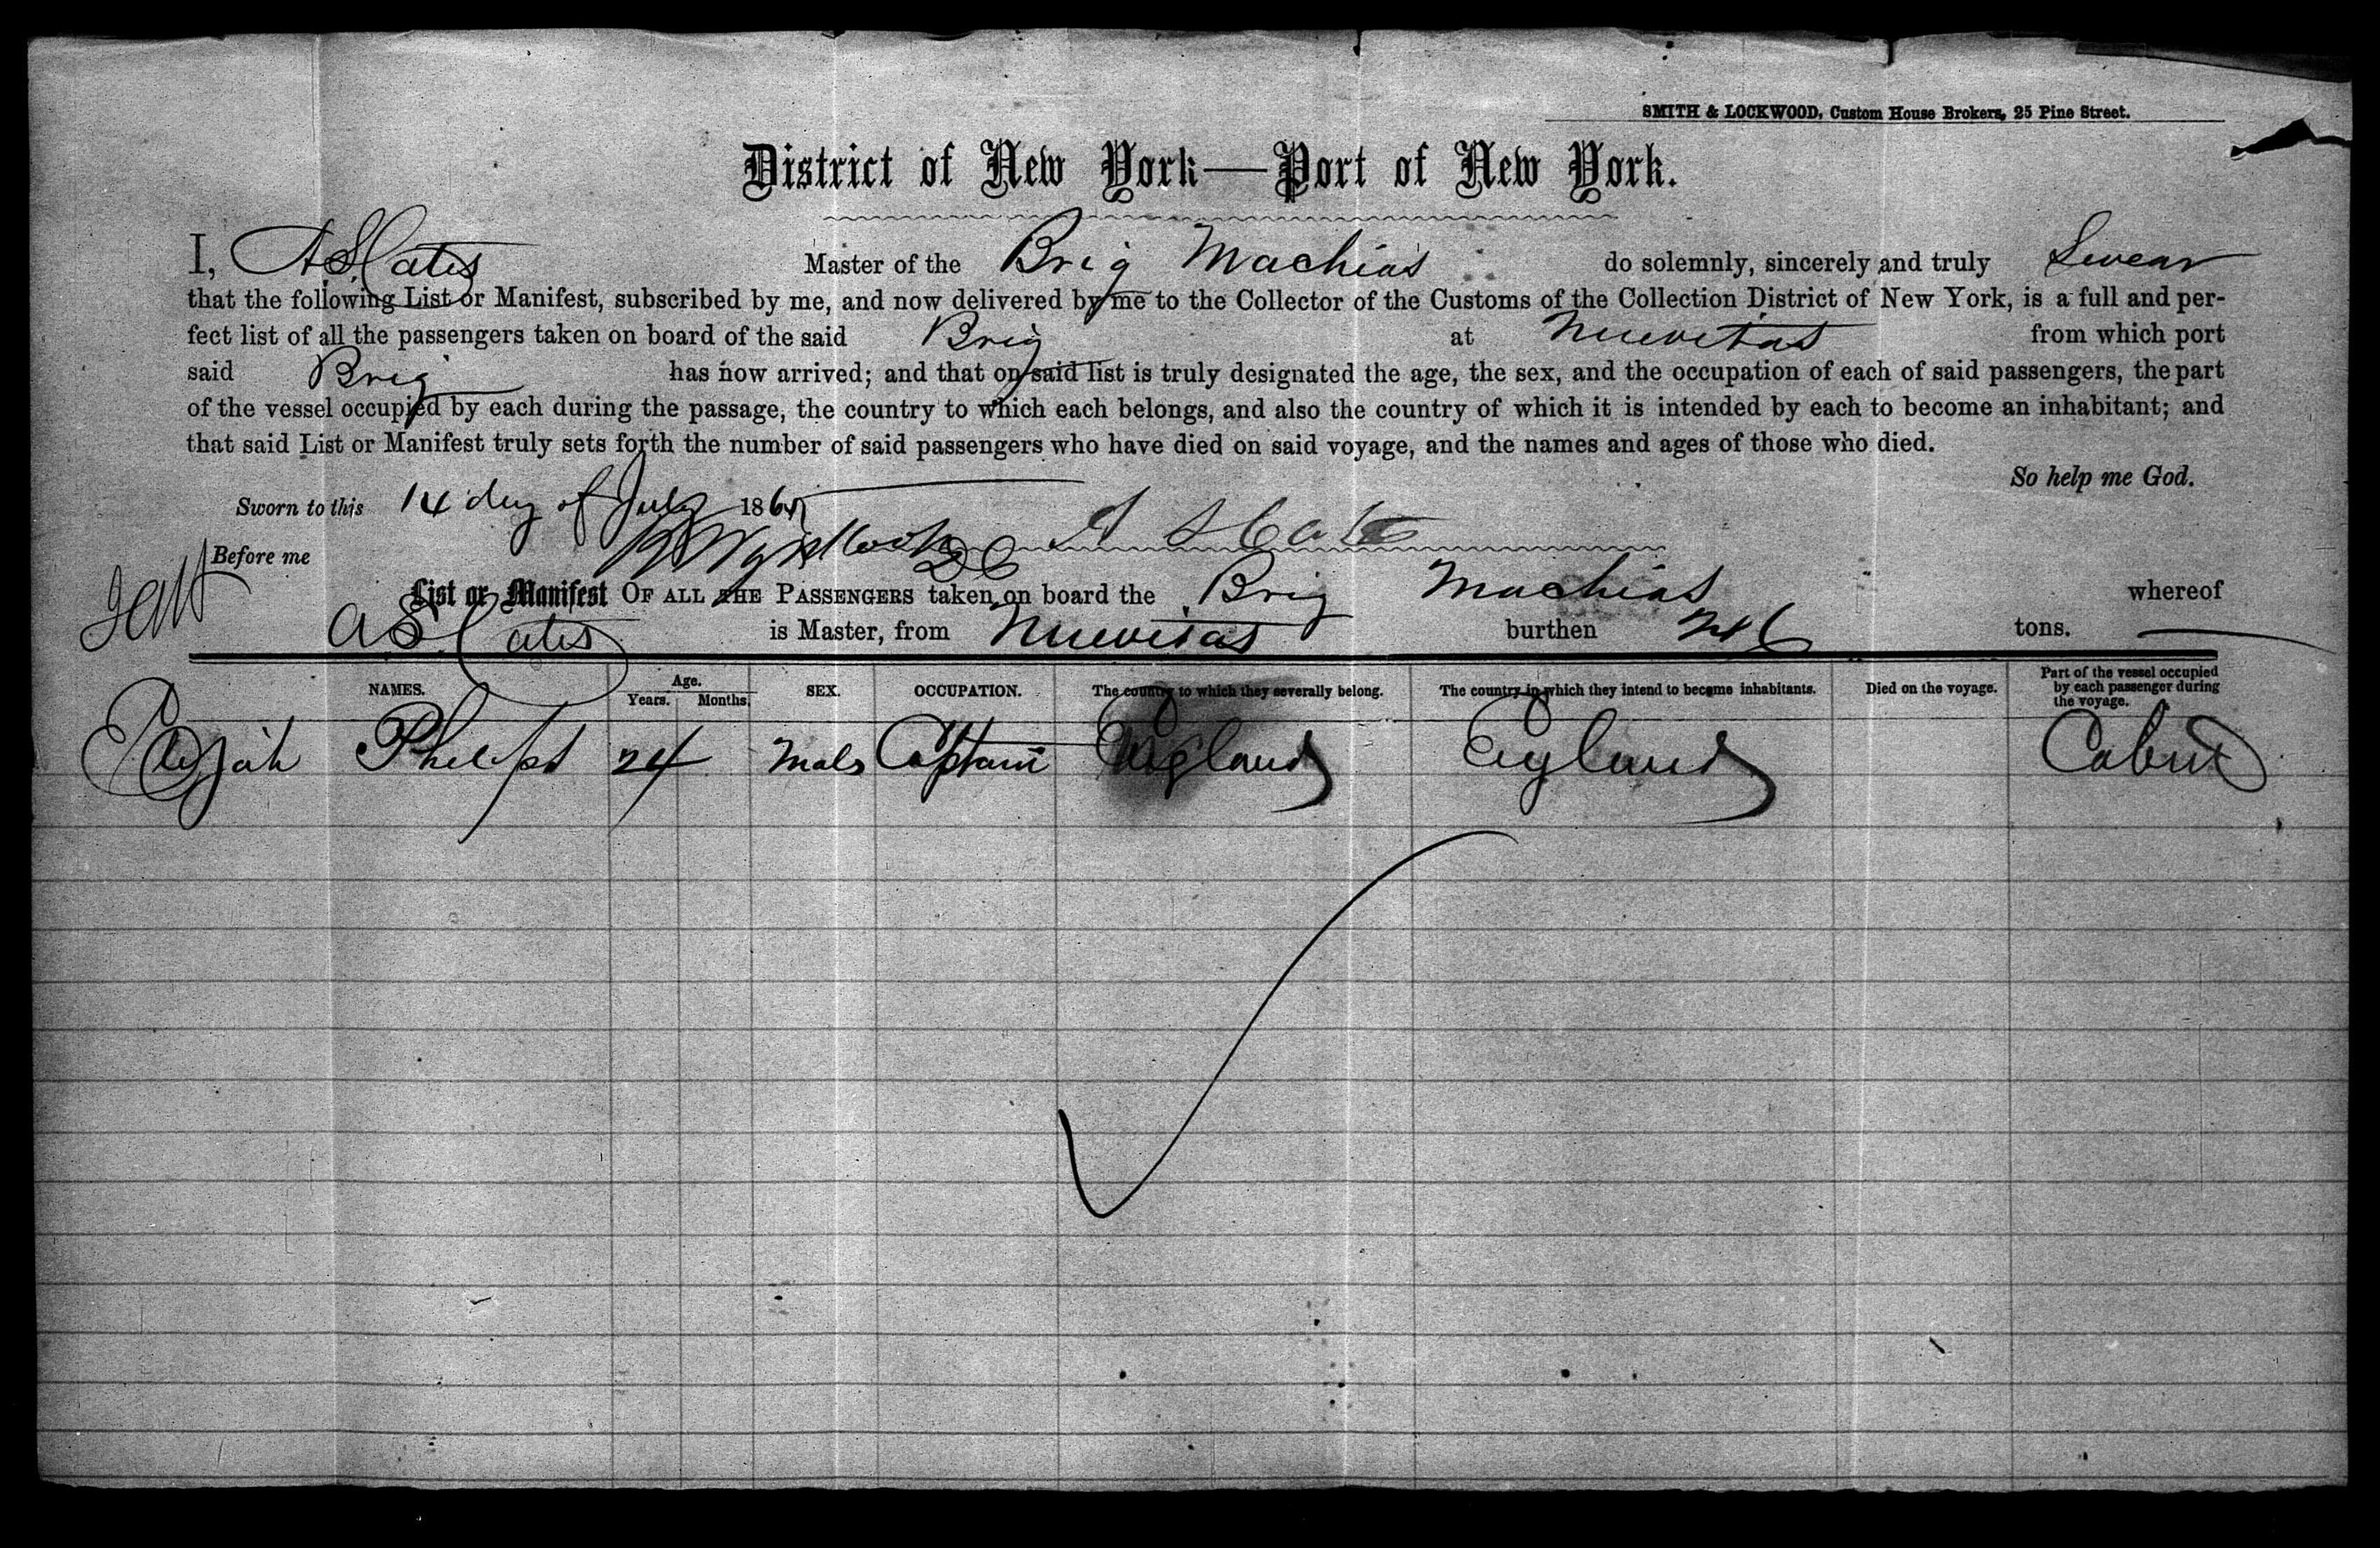 SMITH & LOCKWOOD, Custom House Brokers, 25 Pine Street.
District of New York—Port of New York.
I, A S Cates Master of the Brig Machias do solemnly, sincerely and truly Swear
that the following List or Manifest, subscribed by me, and now delivered by me to the Collector of the Customs of the Collection District of New York, is a full and per-
fect list of all the passengers taken on board of the said Brig at Nuevitas from which port
said Brig has now arrived; and that on said list is truly designated the age, the sex, and the occupation of each of said passengers, the part
of the vessel occupied by each during the passage, the country to which each belongs, and also the country of which it is intended by each to become an inhabitant; and
that said List or Manifest truly sets forth the number of said passengers who have died on said voyage, and the names and ages of those who died.
So help me God.
Sworn to this 14 day of July 186
A S Cates
Before me
List or Manifest OF ALL THE PASSENGERS taken on board the Brig Machias whereof
A S Cates is Master, from Nuevitas burthen 246 tons.
NAMES. Age. Years. Months. SEX. OCCUPATION. The country to which they severally belong. The country in which they intend to become inhabitants. Died on the voyage. Part of the vessel occupied by each passenger during the voyage.
Elijah Phelps 24 Male Captain England England Cabin